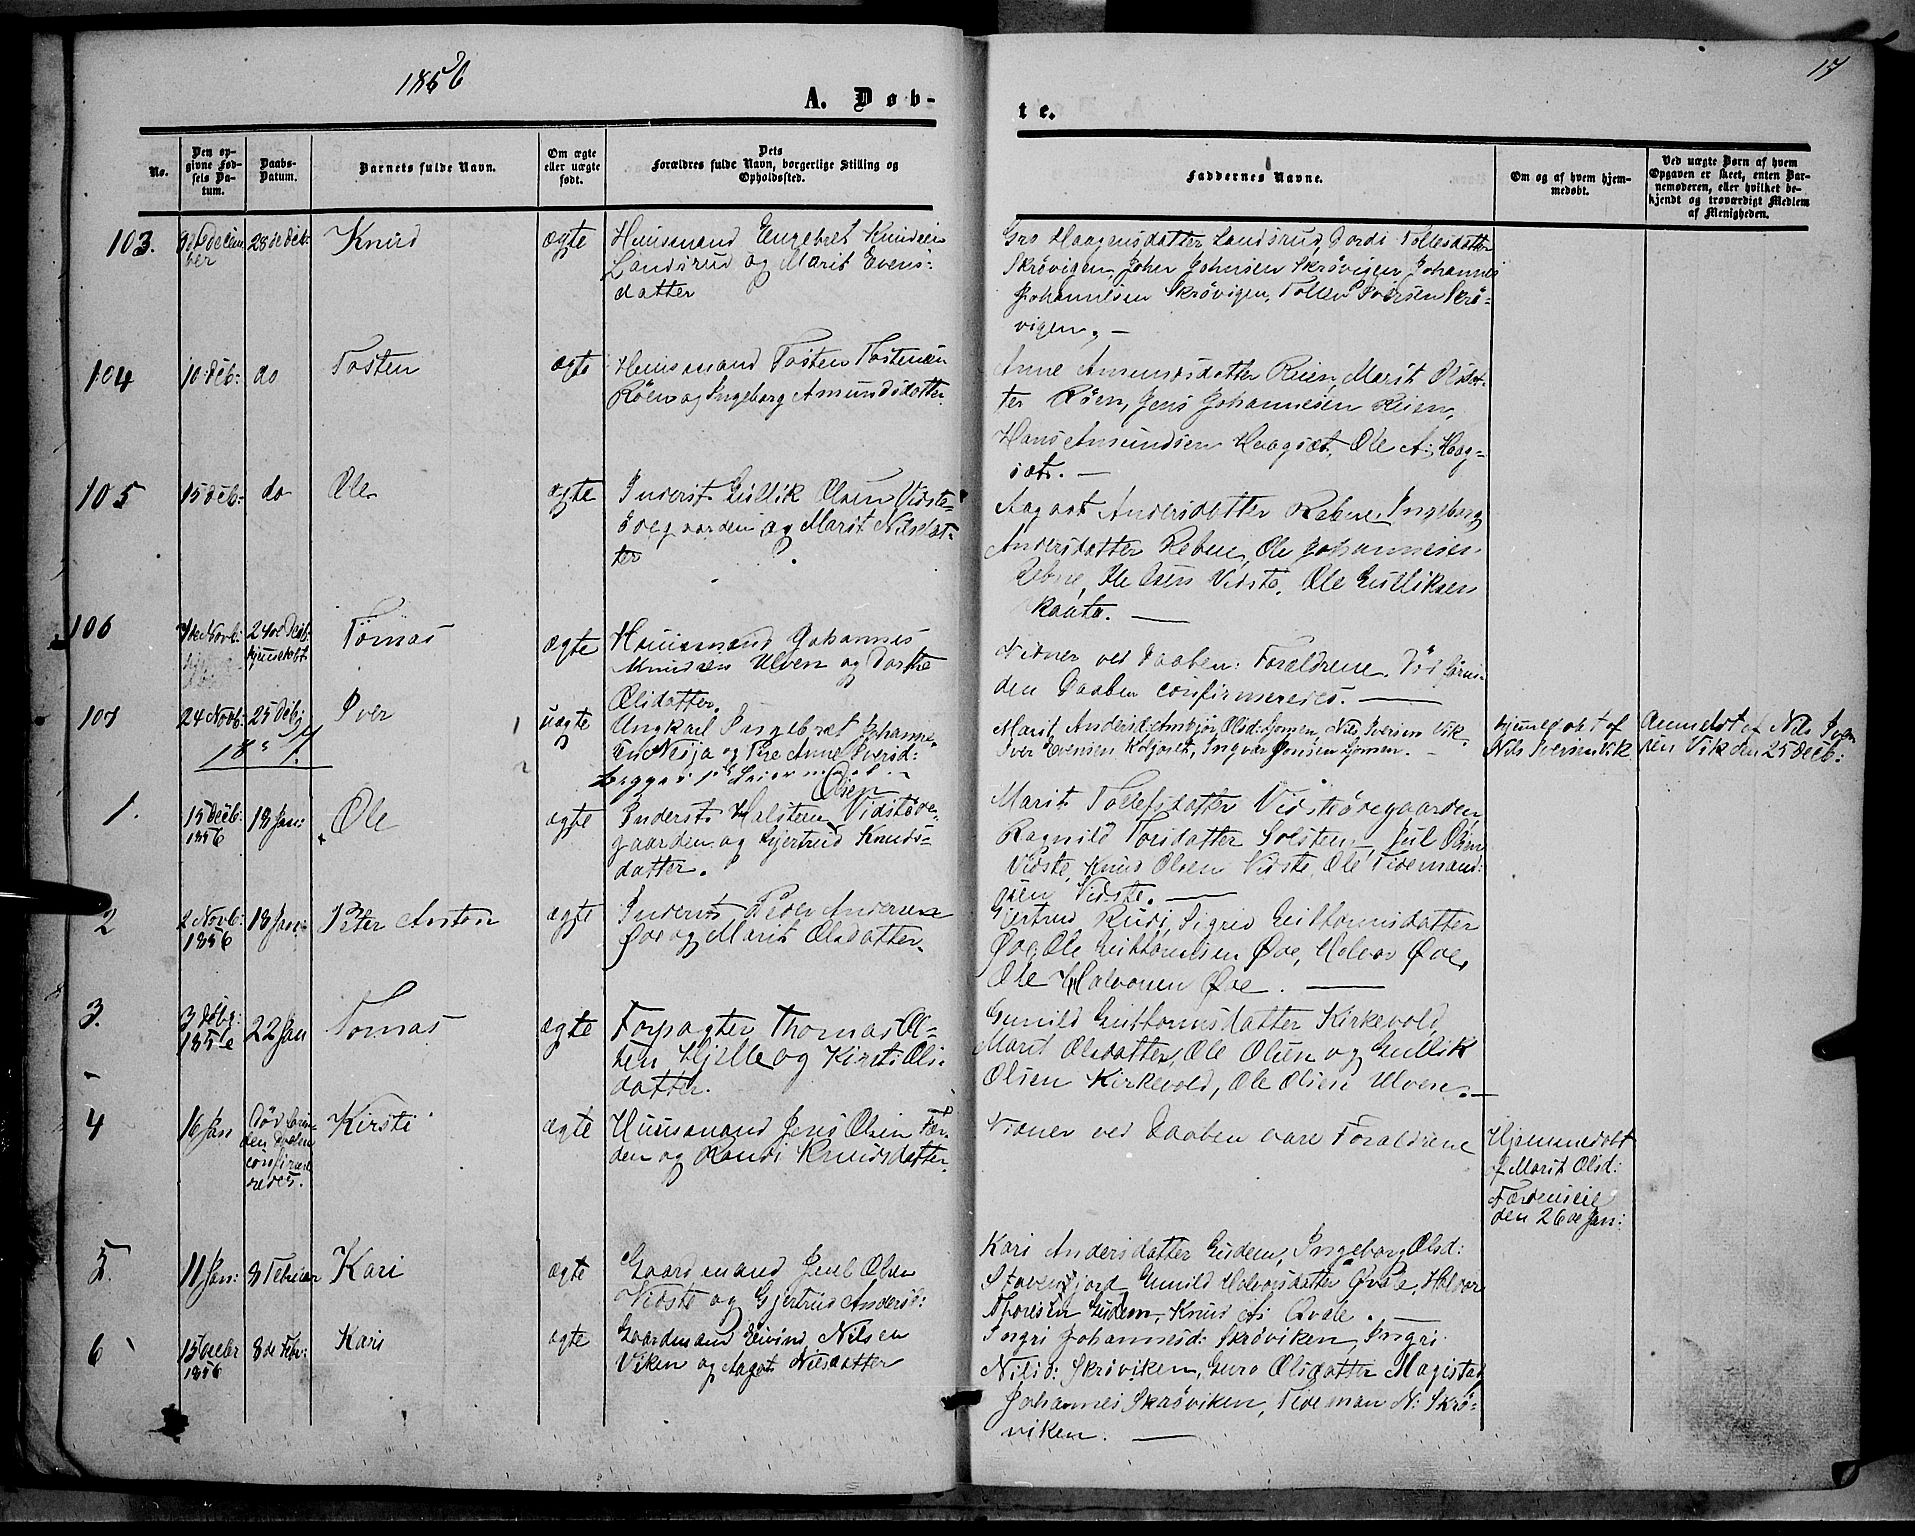 1856
17
A. Døb-
te.
No.
Den op-
givne Fød-
sels Da-
tum.
Daabs-
Datum.
Barnets fulde Navn.
Om ægte
eller uægte
født.
Dets
Forældres fulde Navn, borgerlige Stilling og
Opholdssted.
Faddernes Navne.
Om og af hvem hjem-
medøbt.
Ved uægte Børn af hvem
Opgaven er skeet, enten Bar-
nemoderen, eller hvilket be-
kjendt og troværdigt Medlem
af Menigheden.
103.
ber
28de Deb:
Knud
ægte
Huusmand Engebret Knudsen
Landsrud og Marit Evens-
datter
Gro Haagensdatter Landsrud, Jordi Tollesdatter
Skrøvigen, Joher Johnsen Skrøvigen, Johannes
Johannesen Skrøvigen, Tollev Iversen Skrø-
vigen. —
104
10 Deb:
do
Tosten
ægte
Huusmand Tosten Tostensen
Røen og Ingeborg Amundsdatter
Anne Amundsdatter Reien, Marit Olsdat-
ter Røen, Jens Johannesen Reien,
Hans Amundsen Haagsæt, Ole A: Haag-
sæt. —
105
15 Deb:
do
Ole
ægte
Inderst Gullik Olsen Vidste-
øvegaarden og Marit Nilsdat-
ter
Aagaat Andersdatter Rebne, Ingeborg
Andersdatter Rebne, Ole Johannesen
Rebne, Ole Vidste, Ole Gulliksen
106
24de Deb:
Tomas
ægte
Huusmand Johannes
Ulven og Dorthe
Olsdatter.
Vidner ved Daaben: Forældrene. Død forin-
den Daaben confirmeredes. —
107
24 Novb:
25 Deb:
Iver
uægte
Ungkarl Ingebret Johanne-
sen og Pige Anne Iversd:
Marit Andersd: Olsd: Nils Iversen Vik
Iver Evensen
Hjemdøbt af
Nils Iversen Vik
Anmeldt af Nils Iver-
sen Vik den 25 Decb:
1857.
1.
15 Decb:
1856
18 Jan:
Ole
ægte
Inderst Halsten Olsen Vidsteøve-
gaarden og Gjertrud Knuds-
datter.
Marit Tollefsdatter Vidsteøvegaarden,
Ragnild Torsdatter Solsten, Jul Olsen
Vidste, Knud Olsen Vidste, Ole Tidemand-
sen Vidste. —
2
2 Novb:
1856
18 Jan:
Peter Anton
ægte
Inderst Peder Andersen
Øve og Marit Olsdatter.
Gjertrud Rudi, Sigrid Guttormsdatter
Øve, Ole Guttormsen Øve, Halvor Øve,
Ole Halvorsen Øve. —
3.
3 Debg:
1856
22 Jan
Tomas
ægte
Forpagter Thomas Ol-
sen Hjelle og Kirsti Ols-
datter.
Gunild Guttormsdatter Kirkevold,
Marit Olsdatter, Ole Olsen og Gullik
Olsen Kirkevold, Ole Olsen Ulven. —
4
16 Jan
Død forin-
den Daaben
confirme-
redes.
Kirsti
ægte
Huusmand Jens Olsen Fær-
den og Randi Knudsdatter.
Vidner ved Daaben vare Forældrene
Hjemmedøbt
af Marit Olsd:
Færdenseie
den 26de Jan:
5.
11 Jan:
8 Februar
Kari
ægte
Gaardmand Juul Olsen
Vidste og Gjertrud Andersd:
Kari Andersdatter Gudem, Ingeborg Olsd:
Stavenfjord, Gunild Halvorsdatter Øvste, Halvor
Thoresen Gudem, Knud A: Qvale. —
6
15 Decbr
1856
8de Febr:
Kari
ægte
Gaardmand Eivind Nilsen
Viken og Aagot Nilsdatter
Ingri Johannesd: Skrøviken, Ingri
Nilsd: Skrøviken, Guro Olsdatter Magistad,
Johannes Skrøviken, Tideman N: Skrø-
viken. —